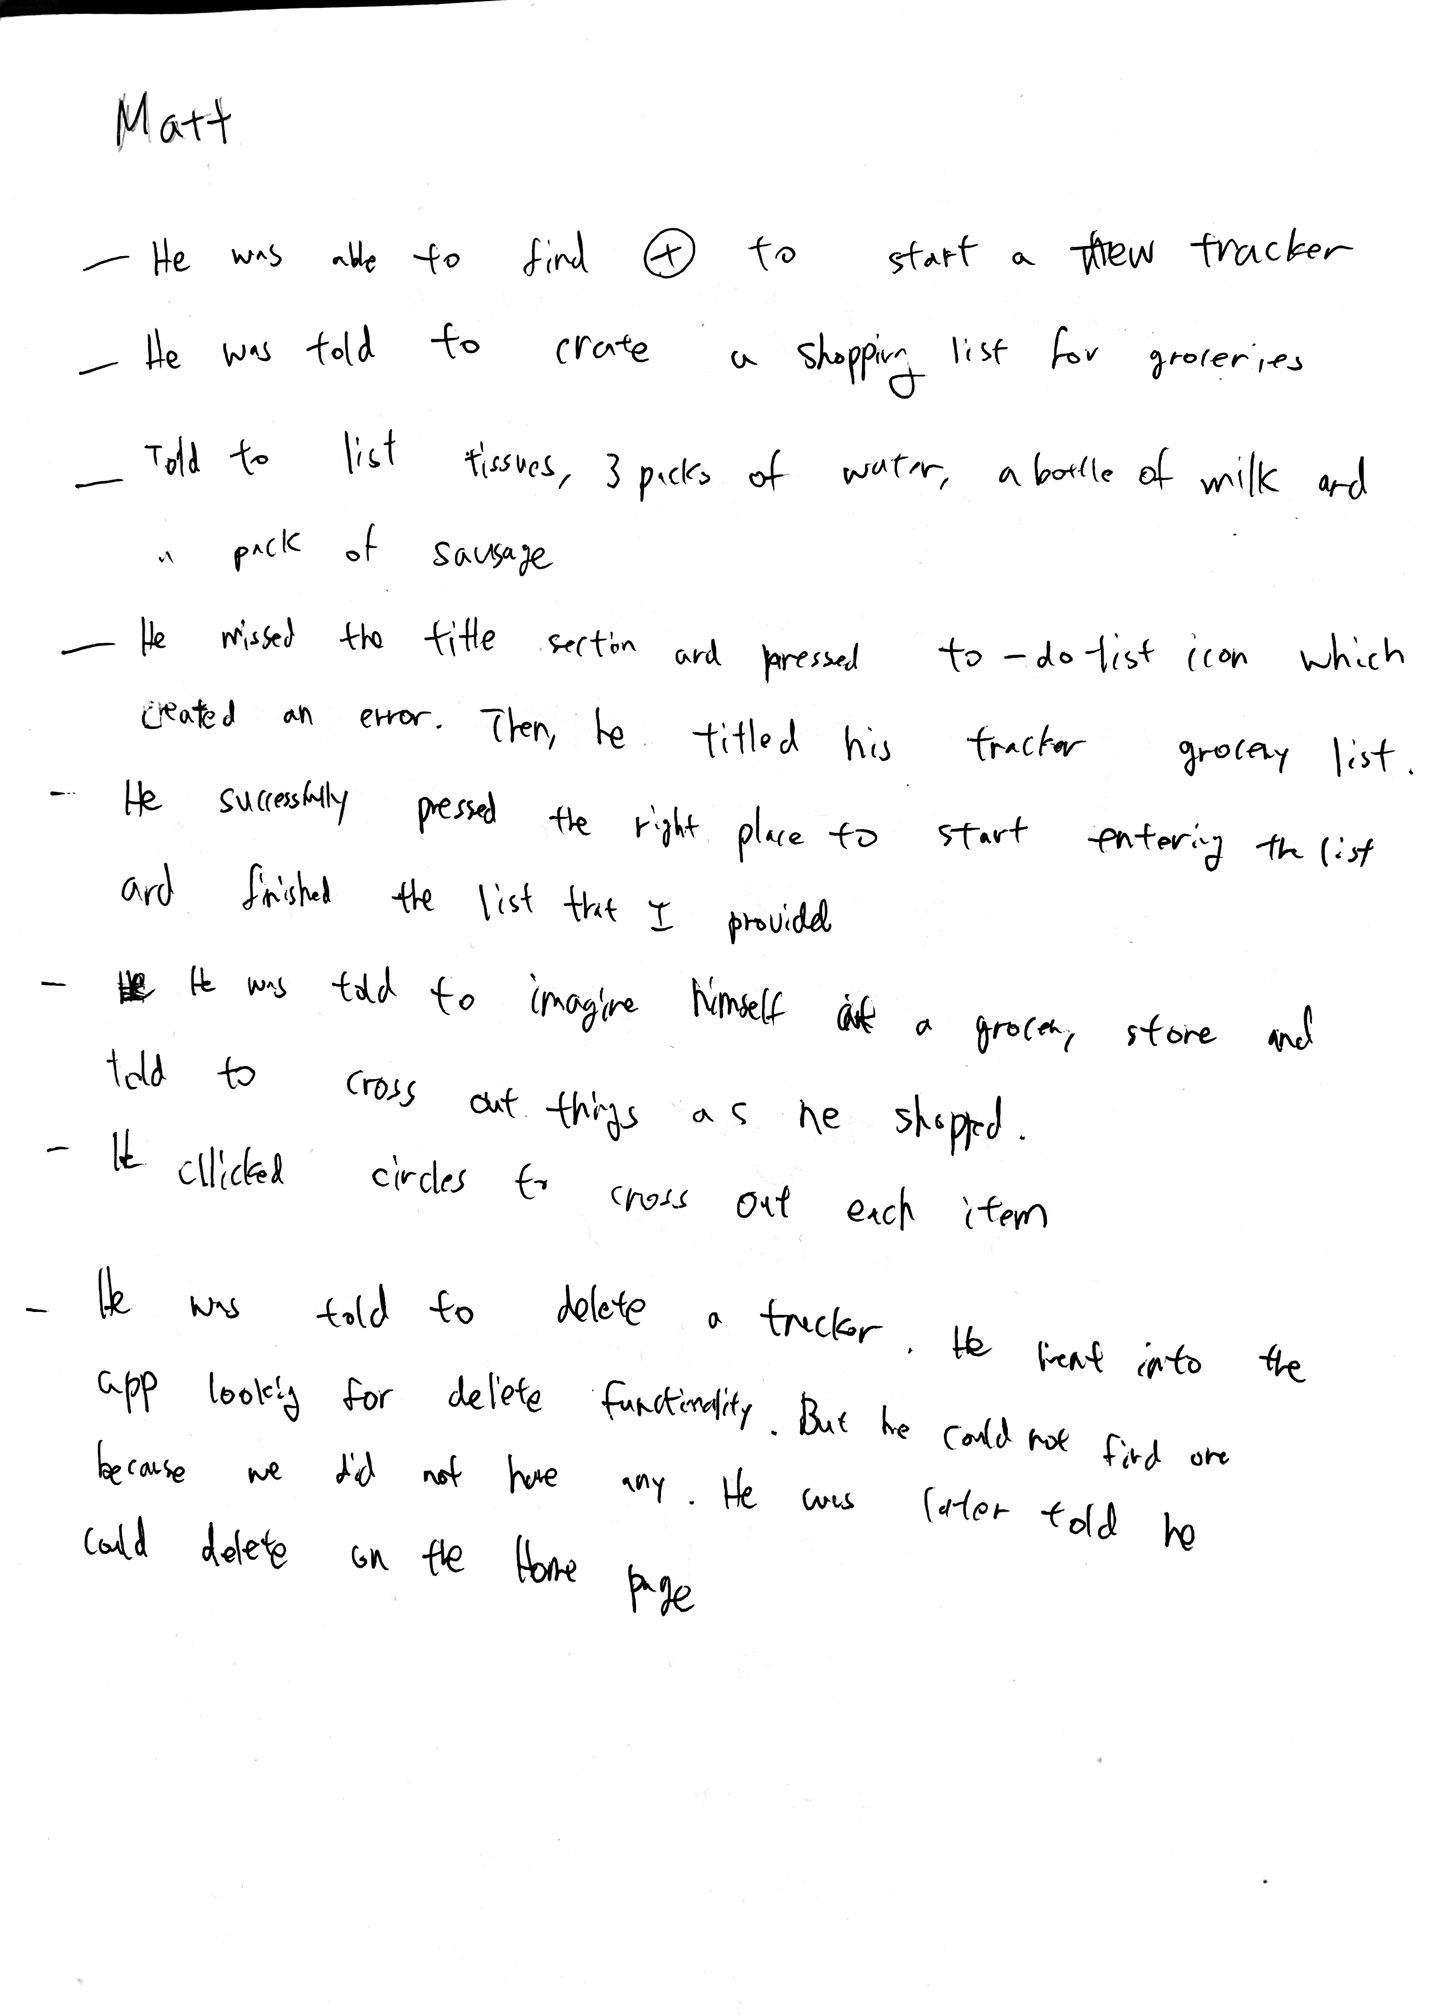 Matt
— He was able to find ⊕ to start a new tracker
— He was told to crate a shopping list for groceries
— Told to list tissues, 3 packs of water, a bottle of milk and
a pack of sausage
— He missed the title section and pressed to-do list icon which
created an error. Then, he titled his tracker grocery list.
- He successfully pressed the right place to start entering the list
and finished the list that I provided
- He was told to imagine himself at a grocery store and
told to cross out things as he shopped.
- He cllicked circles to cross out each item
- He was told to delete a tracker. He went into the
app looking for delete functionality. But he could not find one
because we did not have any. He was later told he
could delete on the Home page